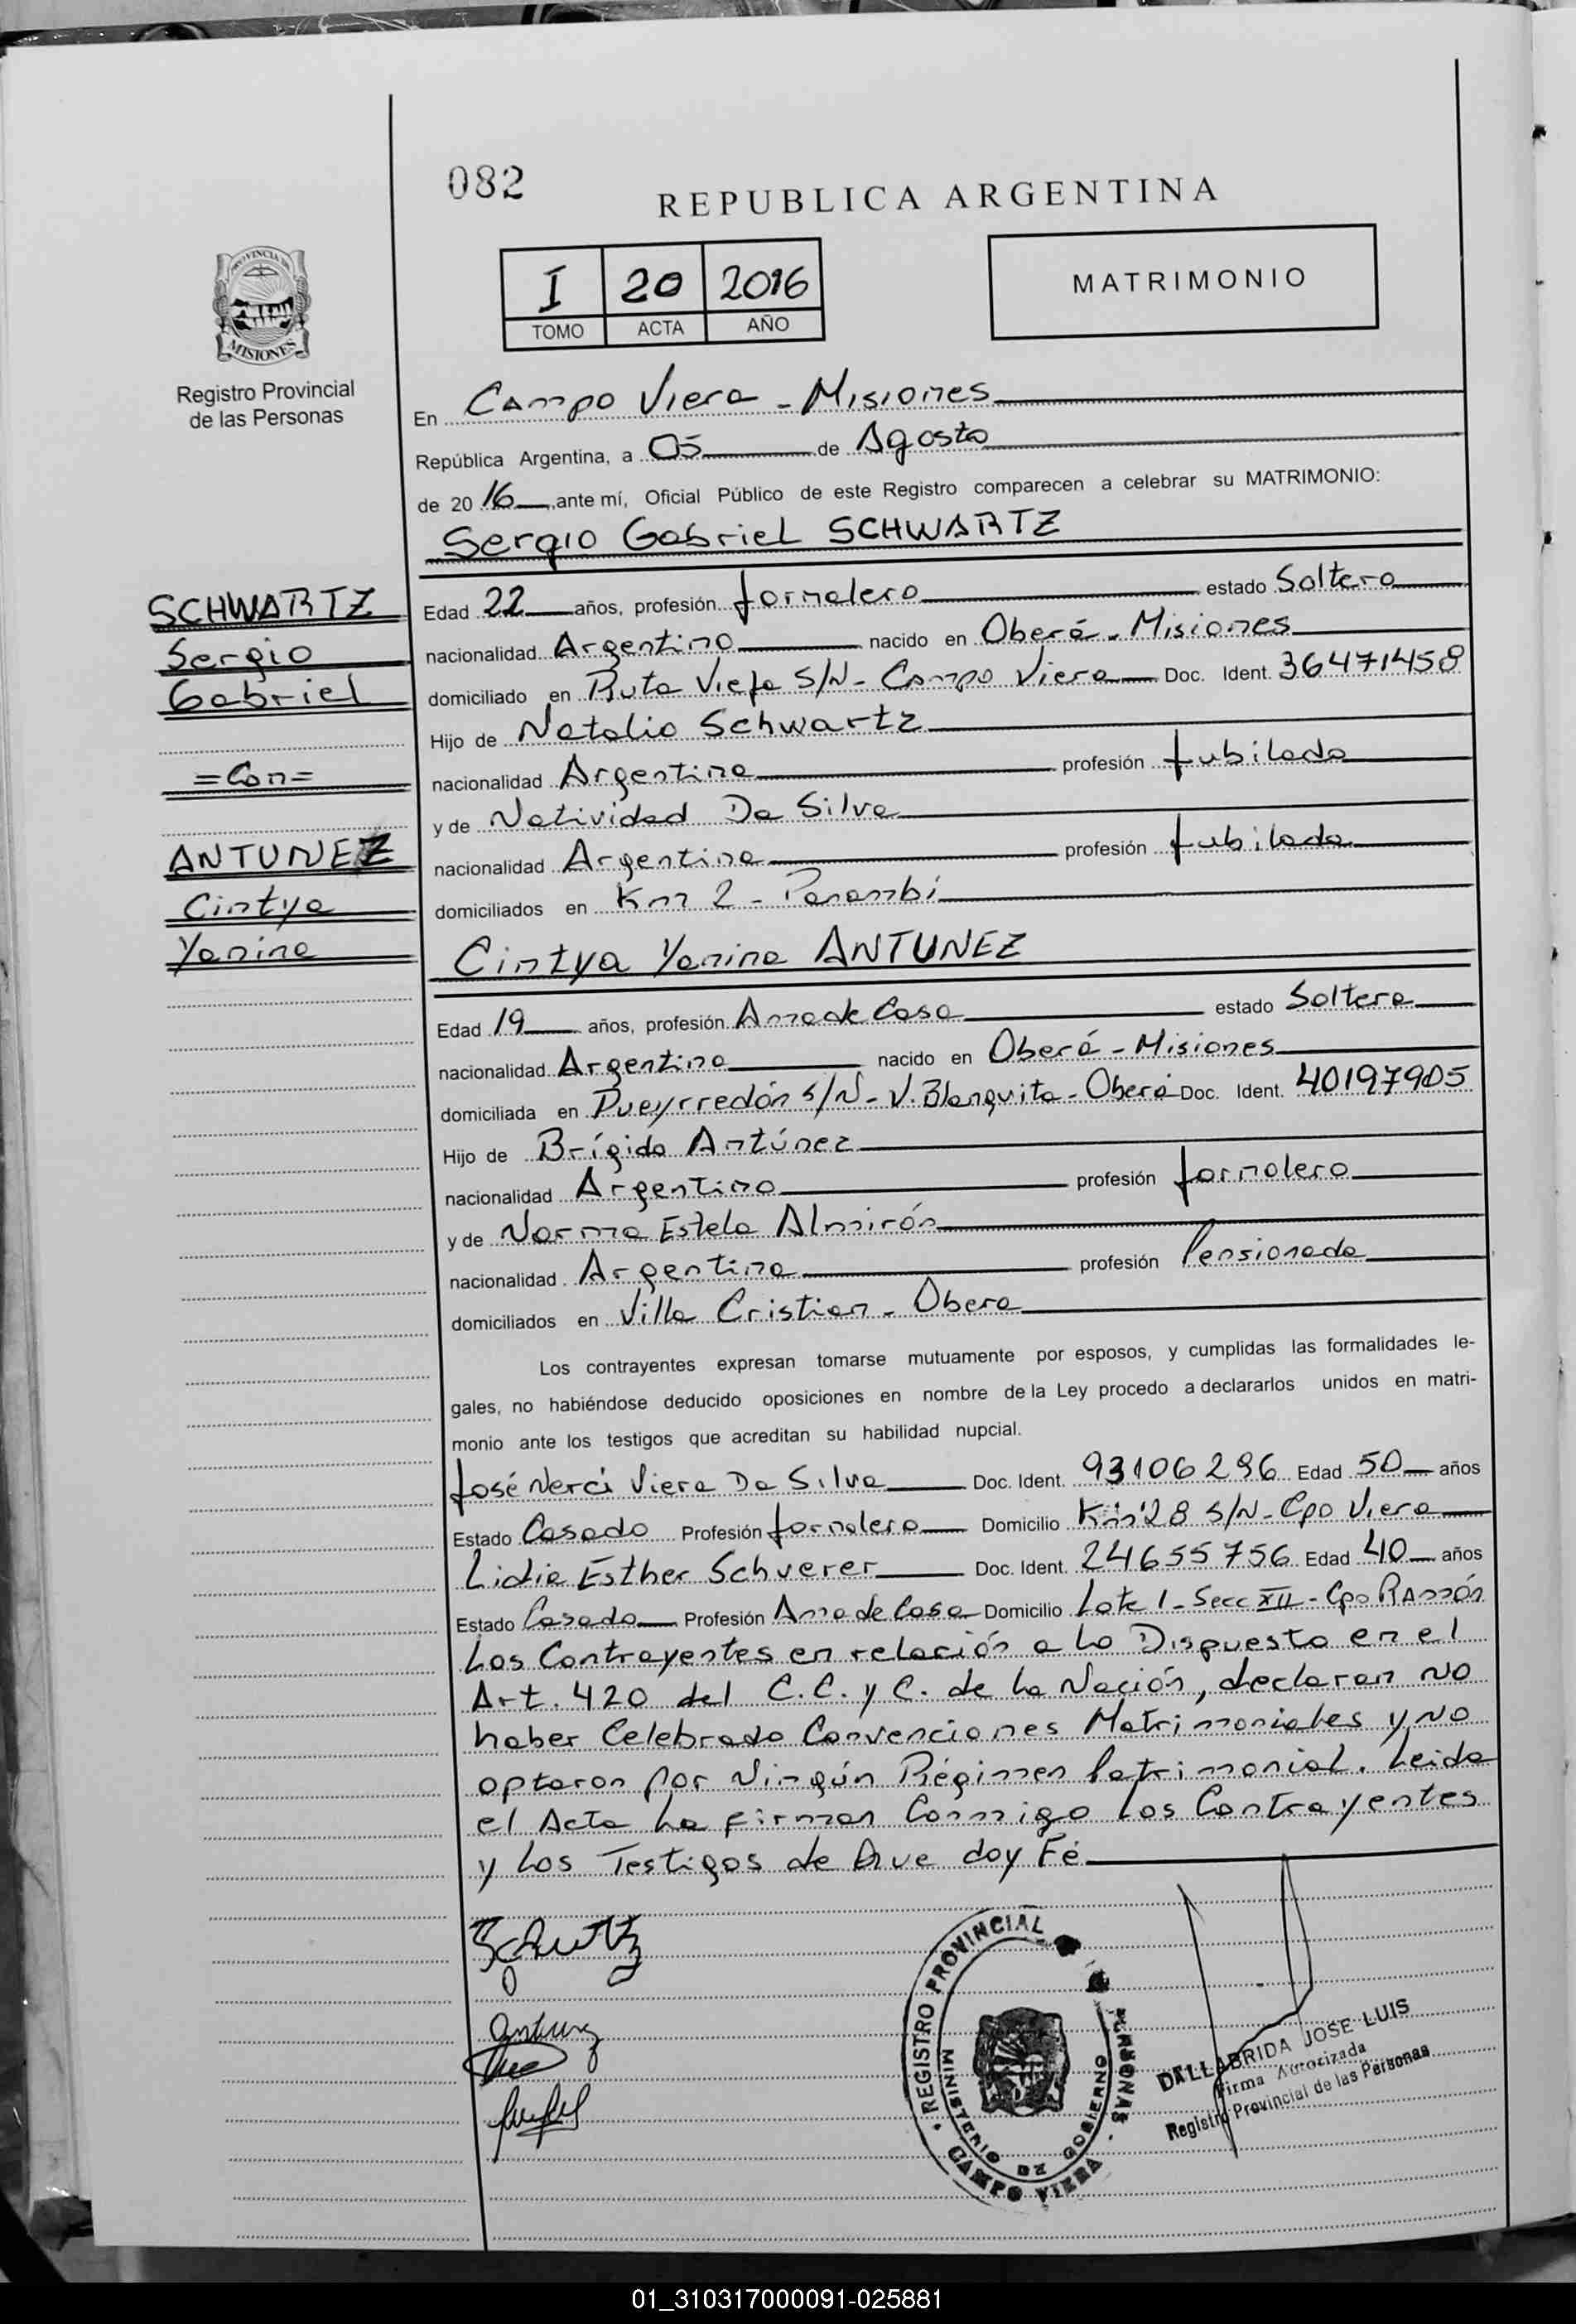 082
REPUBLICA ARGENTINA
I 20 2016
TOMO ACTA AÑO
MATRIMONIO
PROVINCIA DE
MISIONES
Registro Provincial
de las Personas
En Campo Viera - Misiones
República Argentina, a 05 de Agosto
de 2016 ante mí, Oficial Público de este Registro comparecen a celebrar su MATRIMONIO:
Sergio Gabriel SCHWARTZ
SCHWARTZ
Sergio
Gabriel
=Con=
ANTUNEZ
Cintya
Yanina
Edad 22 años, profesión Jornalero estado Soltero
nacionalidad Argentino nacido en Oberá - Misiones
domiciliado en Ruta Vieja S/N - Campo Viera Doc. Ident. 36471458
Hijo de Natalio Schwartz
nacionalidad Argentina profesión Jubilado
y de Natividad Da Silva
nacionalidad Argentina profesión Jubilada
domiciliados en Km 2 - Panambí
Cintya Yanina ANTUNEZ
Edad 19 años, profesión Ama de Casa estado Soltera
nacionalidad Argentina nacido en Oberá - Misiones
domiciliada en Pueyrredón S/N - V. Blanquita - Oberá Doc. Ident. 40197905
Hijo de Brígido Antúnez
nacionalidad Argentino profesión Jornalero
y de Norma Estela Almirón
nacionalidad Argentina profesión Pensionada
domiciliados en Villa Cristian - Obera
Los contrayentes expresan tomarse mutuamente por esposos, y cumplidas las formalidades le-
gales, no habiéndose deducido oposiciones en nombre de la Ley procedo a declararlos unidos en matri-
monio ante los testigos que acreditan su habilidad nupcial.
José Nerci Viera Da Silva Doc. Ident. 93106296 Edad 50 años
Estado Casado Profesión Jornalero Domicilio Km 28 S/N - Cpo Viera
Lidia Esther Schverer Doc. Ident. 24655756 Edad 40 años
Estado Casada Profesión Ama de Casa Domicilio Lote 1 - Secc XII - Cpo Ramón
Los Contrayentes en relación a Lo Dispuesto en el
Art. 420 del C.C. y C. de La Nación, declaran No
haber Celebrado Convenciones Matrimoniales y No
optaron por Ningún Régimen Patrimonial. Leida
el Acta La Firman Conmigo Los Contrayentes
y Los Testigos de Que doy Fé
REGISTRO PROVINCIAL PERSONAS
MINISTERIO DE GOBIERNO
CAMPO VIERA
DALLABRIDA JOSE LUIS
Firma Autorizada
Registro Provincial de las Personas
01_310317000091-025881